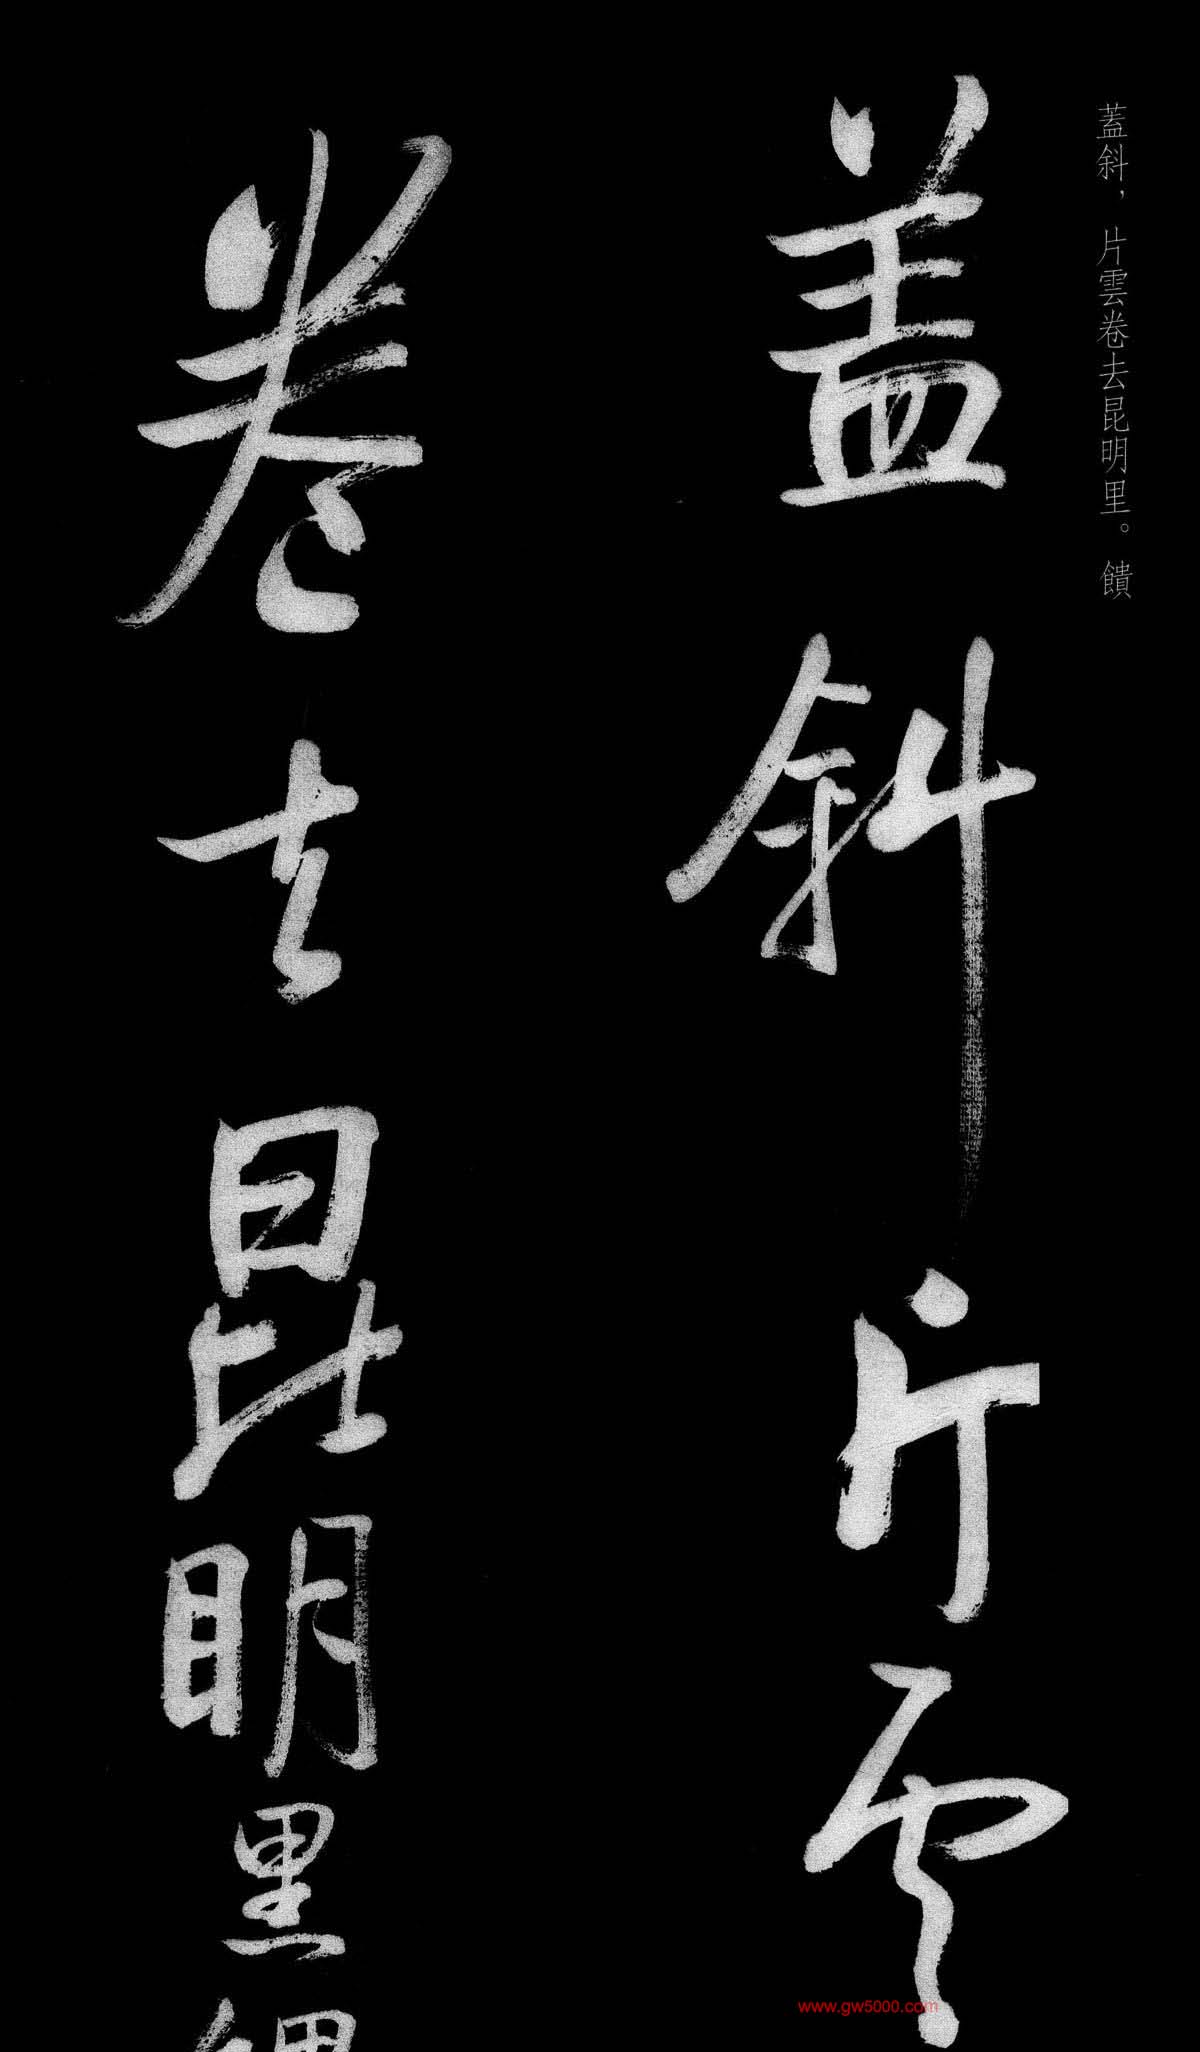 蓋斜，片雲卷去昆明里。饋
盖斜片雲
卷去昆明里
www.gw5000.com